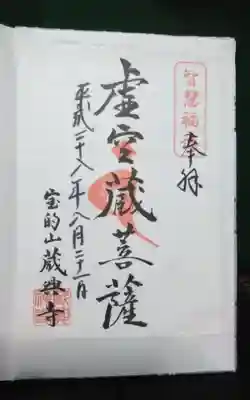 智慧福
奉拝
虚空蔵菩薩
平成二十八年八月二十一日
宝的山蔵興寺